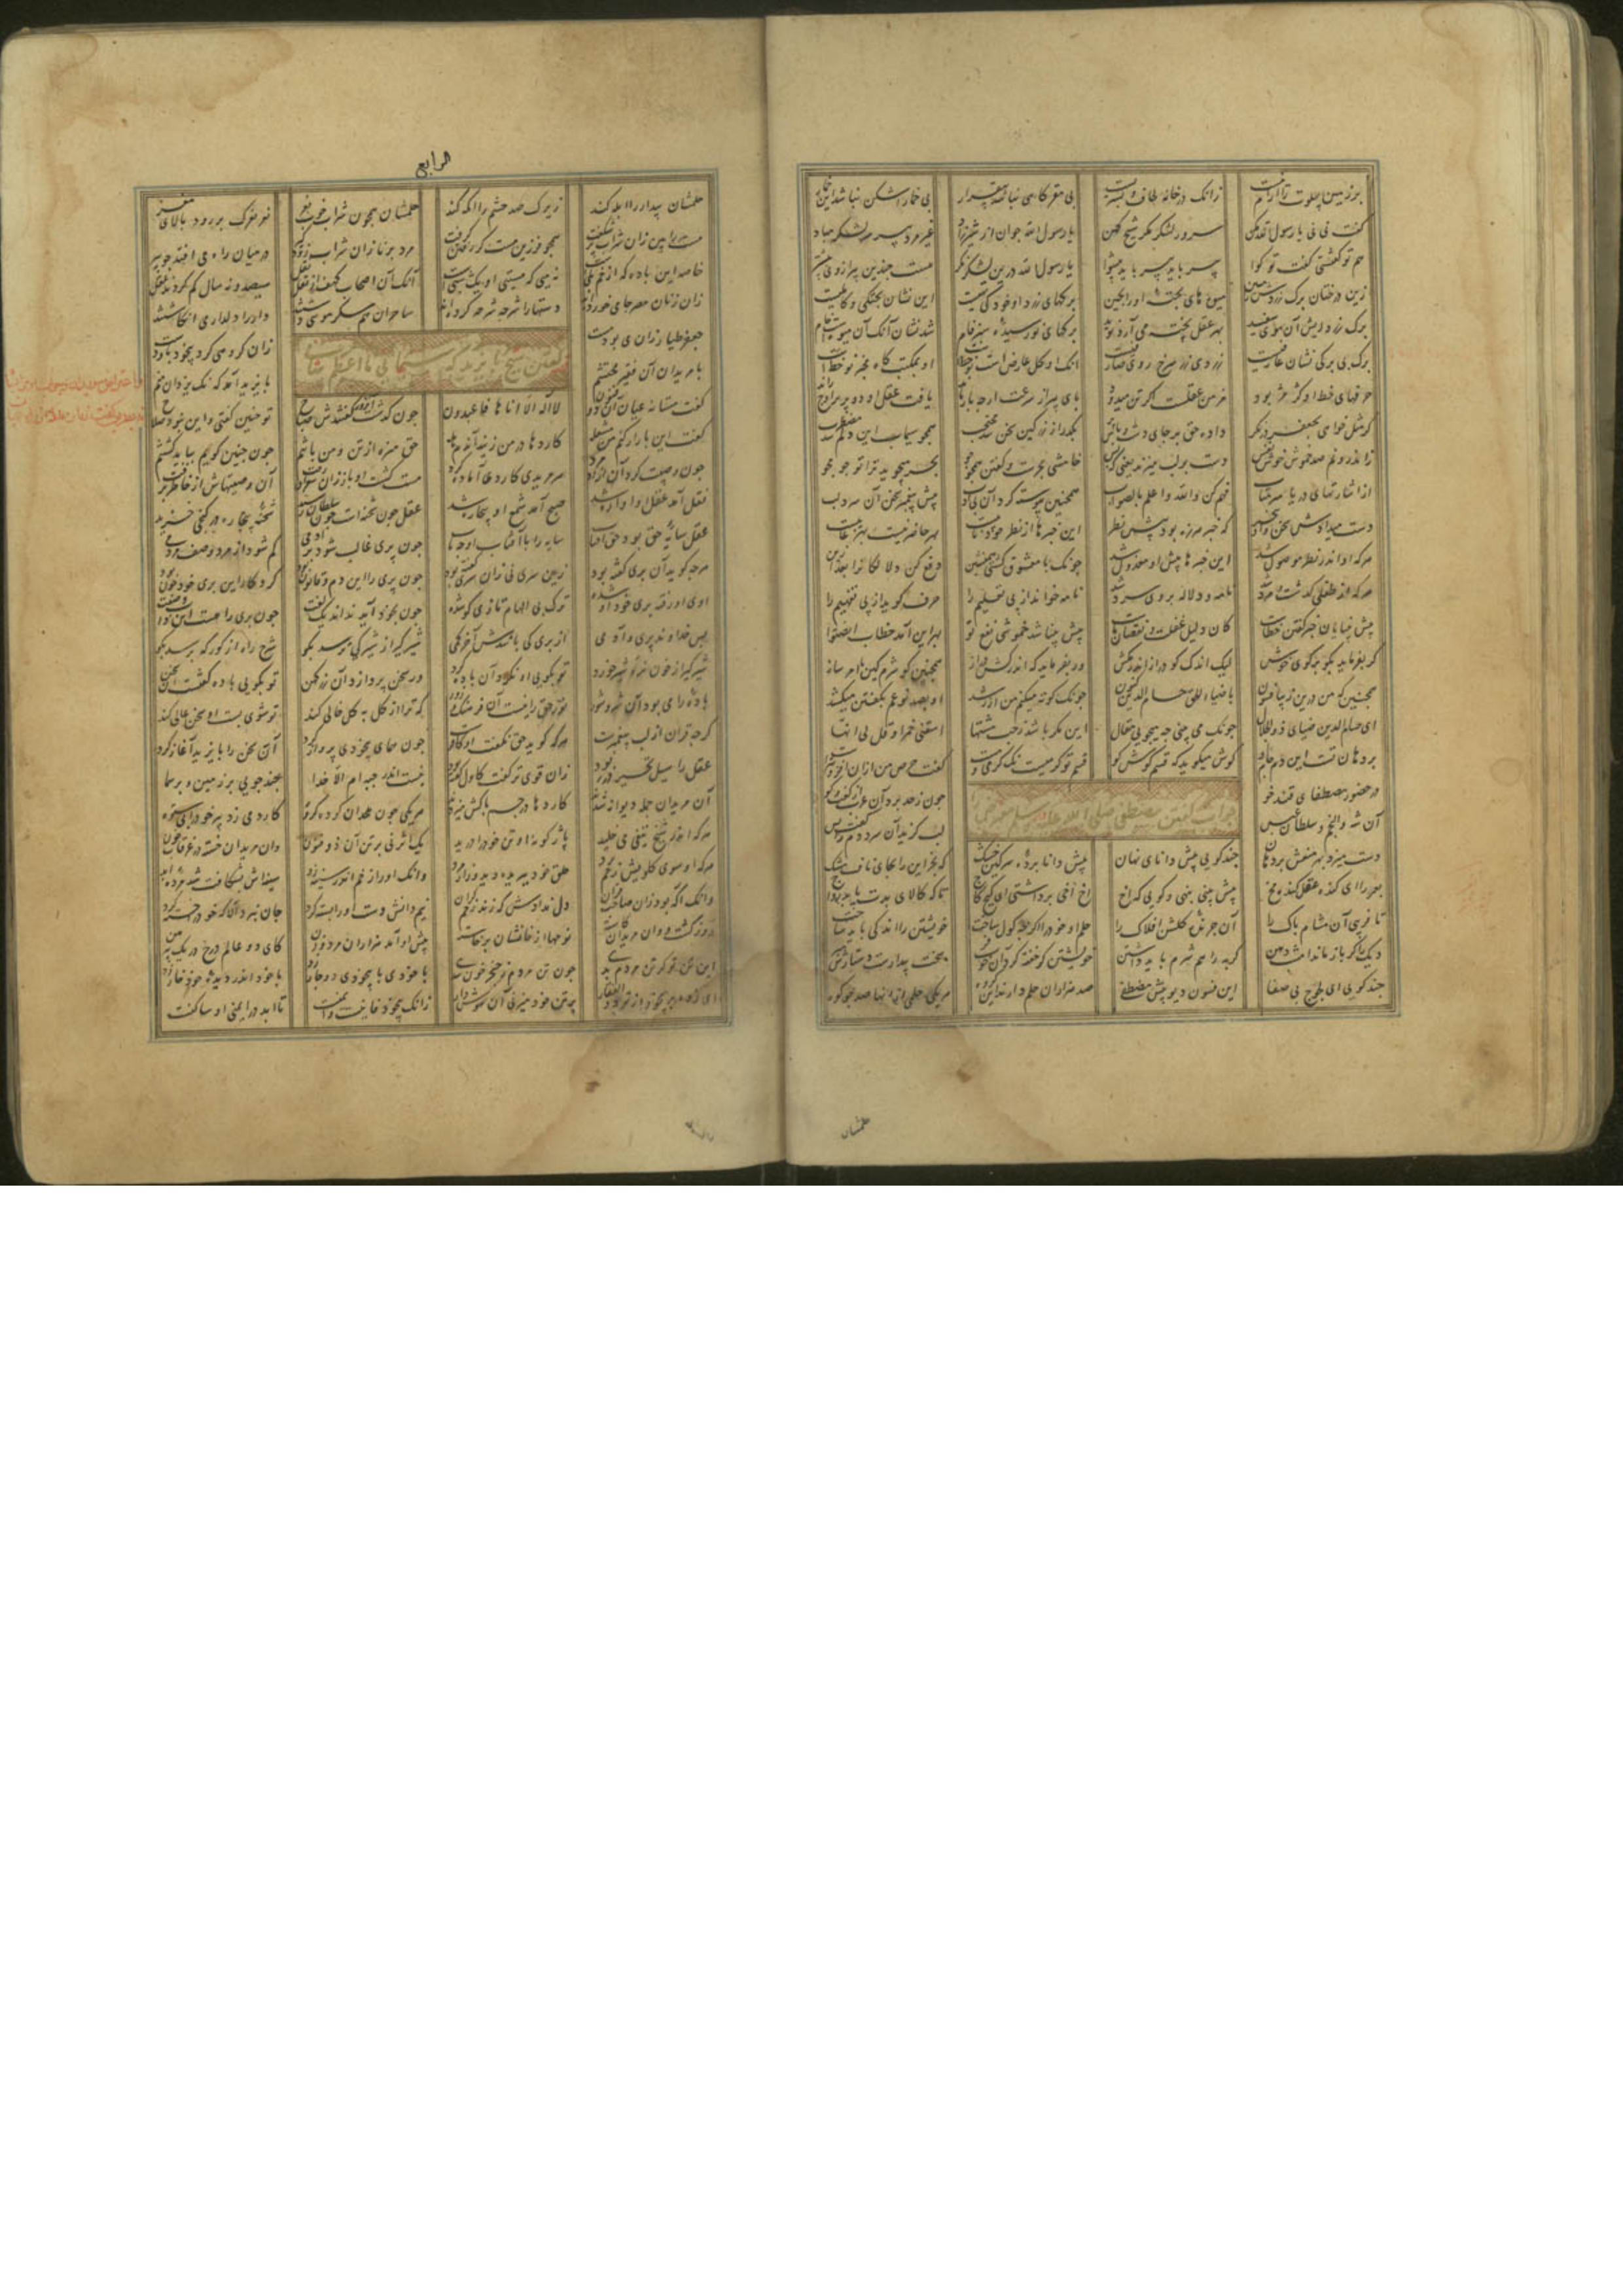 بر زمین پهلوت را آرام نیست زانک در خانه لحاف و بسترست بی مقر گاهی نباشد بی قرار بی خمار اشکن نباشد این خمار
گفت نی نی یا رسول الله مکن سرور لشکر مکر شیخ کهن یا رسول الله جوان ار شیرزاد غیر مرد پیر سر لشکر مباد
هم تو گفتستی گفت تو گوا پیر باید پیر باید پیشوا یا رسول الله درین لشکر نکر هست چندین پیر از وی
زین درختان برک زردش مبین سیبهای پخته اورا بچین برکهای زرد او خود کی تهیست این نشان پختکی و کاملیست
برک زرد ریش آن موی سفید بهر عقل پخته می آرد نوید برکهای نورسیده سبز فام شد نشان آنک آن میوست خام
برک بی برکی نشان عارفیست زردی زر سرخ رویی صارفیست انک او کل عارض است نو خطست او بمکتب کاه مخبر نو خطست
حرفهای خط او کژ مژ بود مزمن عقلست اکر تن میدود پای پیر از سرعت ارچه باز ماند یافت عقل او دو پر بر اوج راند
کر مثل خواهی بجعفر در نکر داد حق بر جای دست و پاش پر بکذر از زر کین سخن شد محتجب همچو سیماب این دلم شد مضطرب
ز اندرونم صد خموش خوش نفس دست بر لب میزند یعنی که بس خامشی بحرست و کفتن همچو جو بحر میجوید ترا تو جو مجو
از اشارتهای دریا سر متاب ختم کن والله اعلم بالصواب همچنین پیوسته کرد آن بی ادب پیش پیغمبر سخن آن سرد لب
دست میدادش سخن او بیخبر که خبر هرزه بود پیش نظر این خبرها از نظر خود نایبست بهر حاضر نیست بهر غایبست
هر که او اندر نظر موصول شد این خبرها پیش او معزول شد چونک با معشوق کشتی همنشین دفع کن دلالکانرا بعد ازین
هر که از طفلی کذشت و مرد شد نامه و دلاله بر وی سرد شد نامه خواند از پی تعلیم را حرف کوید از پی تفهیم را
پیش بینایان خبر کفتن خطاست کان دلیل غفلت و نقصان ماست پیش بینا شد خموشی نفع تو بهر این آمد خطاب انصتوا
کر بفرماید بکو بر کوی خوش لیک اندک کو دراز اندر مکش ور بفرماید که اندر کش دراز همچنین کو شرمکین با امر ساز
همچنین که من درین زیبا فسون با ضیاء الحق حسام الدین کنون چونک کوته میکنم من از رشد او بصد نوعم بکفتن میکشد
ای حسام الدین ضیای ذو الجلال چونک می بینی چه میجویی مقال این مکر باشد ز حب مشتها اسقنی خمرا و قل لی انها
بر دهان تست این دم جام او کوش میکوید که قسم کوش کو قسم تو کرمیست نک کرمی و مست کفت حرص من ازین افزونترست
جواب کفتن مصطفی صلی الله علیه و سلم معترض را
در حضور مصطفای قند خو چون ز حد برد آن عرب از کفت و کو
آن شه والنجم و سلطان عبس لب کزید آن سرد دم را کفت بس
دست میزد بهر منعش بر دهان چند کویی پیش دانای نهان پیش دانا برده سرکین خشک که بخر این را بجای ناف مشک
بعر را ای کنده مغز کنده مخ پیش بینی بنهی و کویی که اخ اخ اخی برداشتی ای کیج کاج تا که کالای بدت یابد رواج
تا فریبی آن مشام پاک را آن چریده کلشن افلاک را حلم او خود را اکر چه کول ساخت خویشتن را اندکی باید شناخت
دیک را کر باز ماند امشب دهن کربه را هم شرم باید داشتن خویشتن کر خفته کرد آن خوب فر سخت بیدارست دستارش مبر
چند کویی ای لجوج بی صفا این فسون دیو پیش مصطفی صد هزاران حلم دارند این کروه هر یکی حلمی از آنها صد چو کوه
حلمشان
الرابع
حلمشان بیدار را ابله کند زیرک صد چشم را اکمه کند حلمشان همچون شراب خوب نغز نغز نغزک بر رود بالای مغز
مست را بین زان شراب پر شکفت همچو فرزین مست کژ رفتن کرفت مرد برنا زان شراب زود کیر در میان راه می افتد چو پیر
خاصه این باده که از خم بلیست نه میی که مستی او یکشبیست آنک آن اصحاب کهف از نقل سیصد و نه سال کم کردند عقل
زان زنان مصر جامی خورده اند دستها را شرحه شرحه کرده اند ساحران هم سکر موسی داشتند دار را دلدار می انکاشتند
جعفر طیار زان می بود مست زان کرو می کرد بیخود پا و دست
کفتن شیخ بایزید که سبحانی ما اعظم شانی
با مریدان آن فقیر محتشم بایزید آمد که نک یزدان منم
کفت مستانه عیان آن ذو فنون لا اله الا انا ها فاعبدون چون کذشت آن کفتندش صباح تو چنین کفتی و این نبود صلاح
کفت این بار ار کنم من مشغله کاردها در من زنید آندم هله حق منزه از تن و من با تنم چون چنین کویم بباید کشتنم
چون وصیت کرد آن آزاد مرد هر مریدی کاردی آماده کرد مست کشت او باز زان آن وصیتهاش از خاطر برفت
نقل آمد عقل او آواره شد صبح آمد شمع او بیچاره شد عقل چون شحنه است چون سلطان رسید شحنه بیچاره در کنجی خزید
عقل سایه حق بود حق آفتاب سایه را با آفتاب او چه تاب چون پری غالب شود بر آدمی کم شود از مرد وصف مردمی
هر چه کوید آن پری کفته بود زین سری نی زان سری کفته بود چون پری را این دم و قانون بود کردکار این پری خود چون بود
اوی او رفته پری خود او شده ترک بی الهام تازی کو شده چون بخود آید نداند یک لغت چون پری را هست این ذات و صفت
پس خداوند پری و آدمی از پری کی باشدش آخر کمی شیر کیر از شیر کی ترسد بکو شرح راه از کور که پرسد بکو
شیر کیر از خون نره شیر خورد تو بکویی او نکرد آن باده کرد ور سخن پردازد آن زر کهن تو بکویی باده کفتست این سخن
باده را می بود آن شر و شور نور حق را نیست آن فرهنک و زور که ترا از کل به کل خالی کند تو شوی پست او سخن عالی کند
کرچه قران از لب پیغمبرست هر که کوید حق نکفت او کافرست چون همای بیخودی پرواز کرد آن سخن را بایزید آغاز کرد
عقل را سیل تحیر در ربود زان قوی تر کفت کاول کفته بود نیست اندر جبه ام الا خدا چند جویی بر زمین و بر سما
آن مریدان جمله دیوانه شدند کاردها در جسم پاکش میزدند هر یکی چون ملحدان کرده کوه کارد می زد پیر خود را بی ستوه
هر که اندر شیخ تیغی می خلید باژکونه او تن خود را درید یک اثر نی بر تن آن ذو فنون وان مریدان خسته در غرقاب خون
هر که او سوی کلویش زخم برد حلق خود ببریده دید و زار مرد وانک او را زخم اندر سینه زد سینه اش بشکافت شد مرده ابد
وانک آکه بود زان صاحب قران دل ندادش که زند زخم کران نیم دانش دست او را بسته کرد جان ببرد الا که خود را خسته کرد
روز کشت و آن مریدان کاسته نوحها از خانشان برخاسته پیش او آمد هزاران مرد و زن کای دو عالم درج در یک پیرهن
این تن تو کر تن مردم بدی چون تن مردم ز خنجر خون شدی با خودی با بیخودی دوچار زد با خود اندر دیده خود خار زد
ای زده بر بیخودان تو ذو الفقار بر تن خود میزنی آن هوش دار زانک بیخود فانیست و ایمنست تا ابد در ایمنی او ساکنست